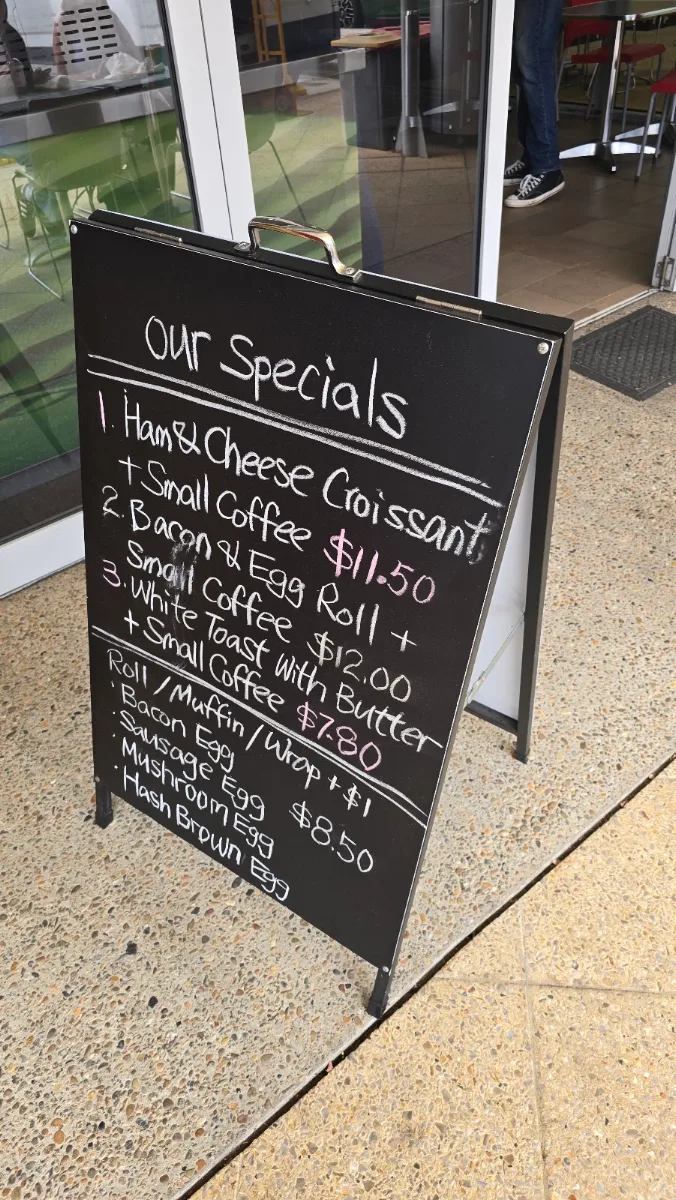 Our Specials
1. Ham & Cheese Croissant
+ Small Coffee $11.50
2. Bacon & Egg Roll +
Small Coffee $12.00
3. White Toast with Butter
+ Small Coffee $7.80
Roll / Muffin / Wrap + $1
· Bacon Egg
· Sausage Egg $8.50
· Mushroom Egg
· Hash Brown Egg